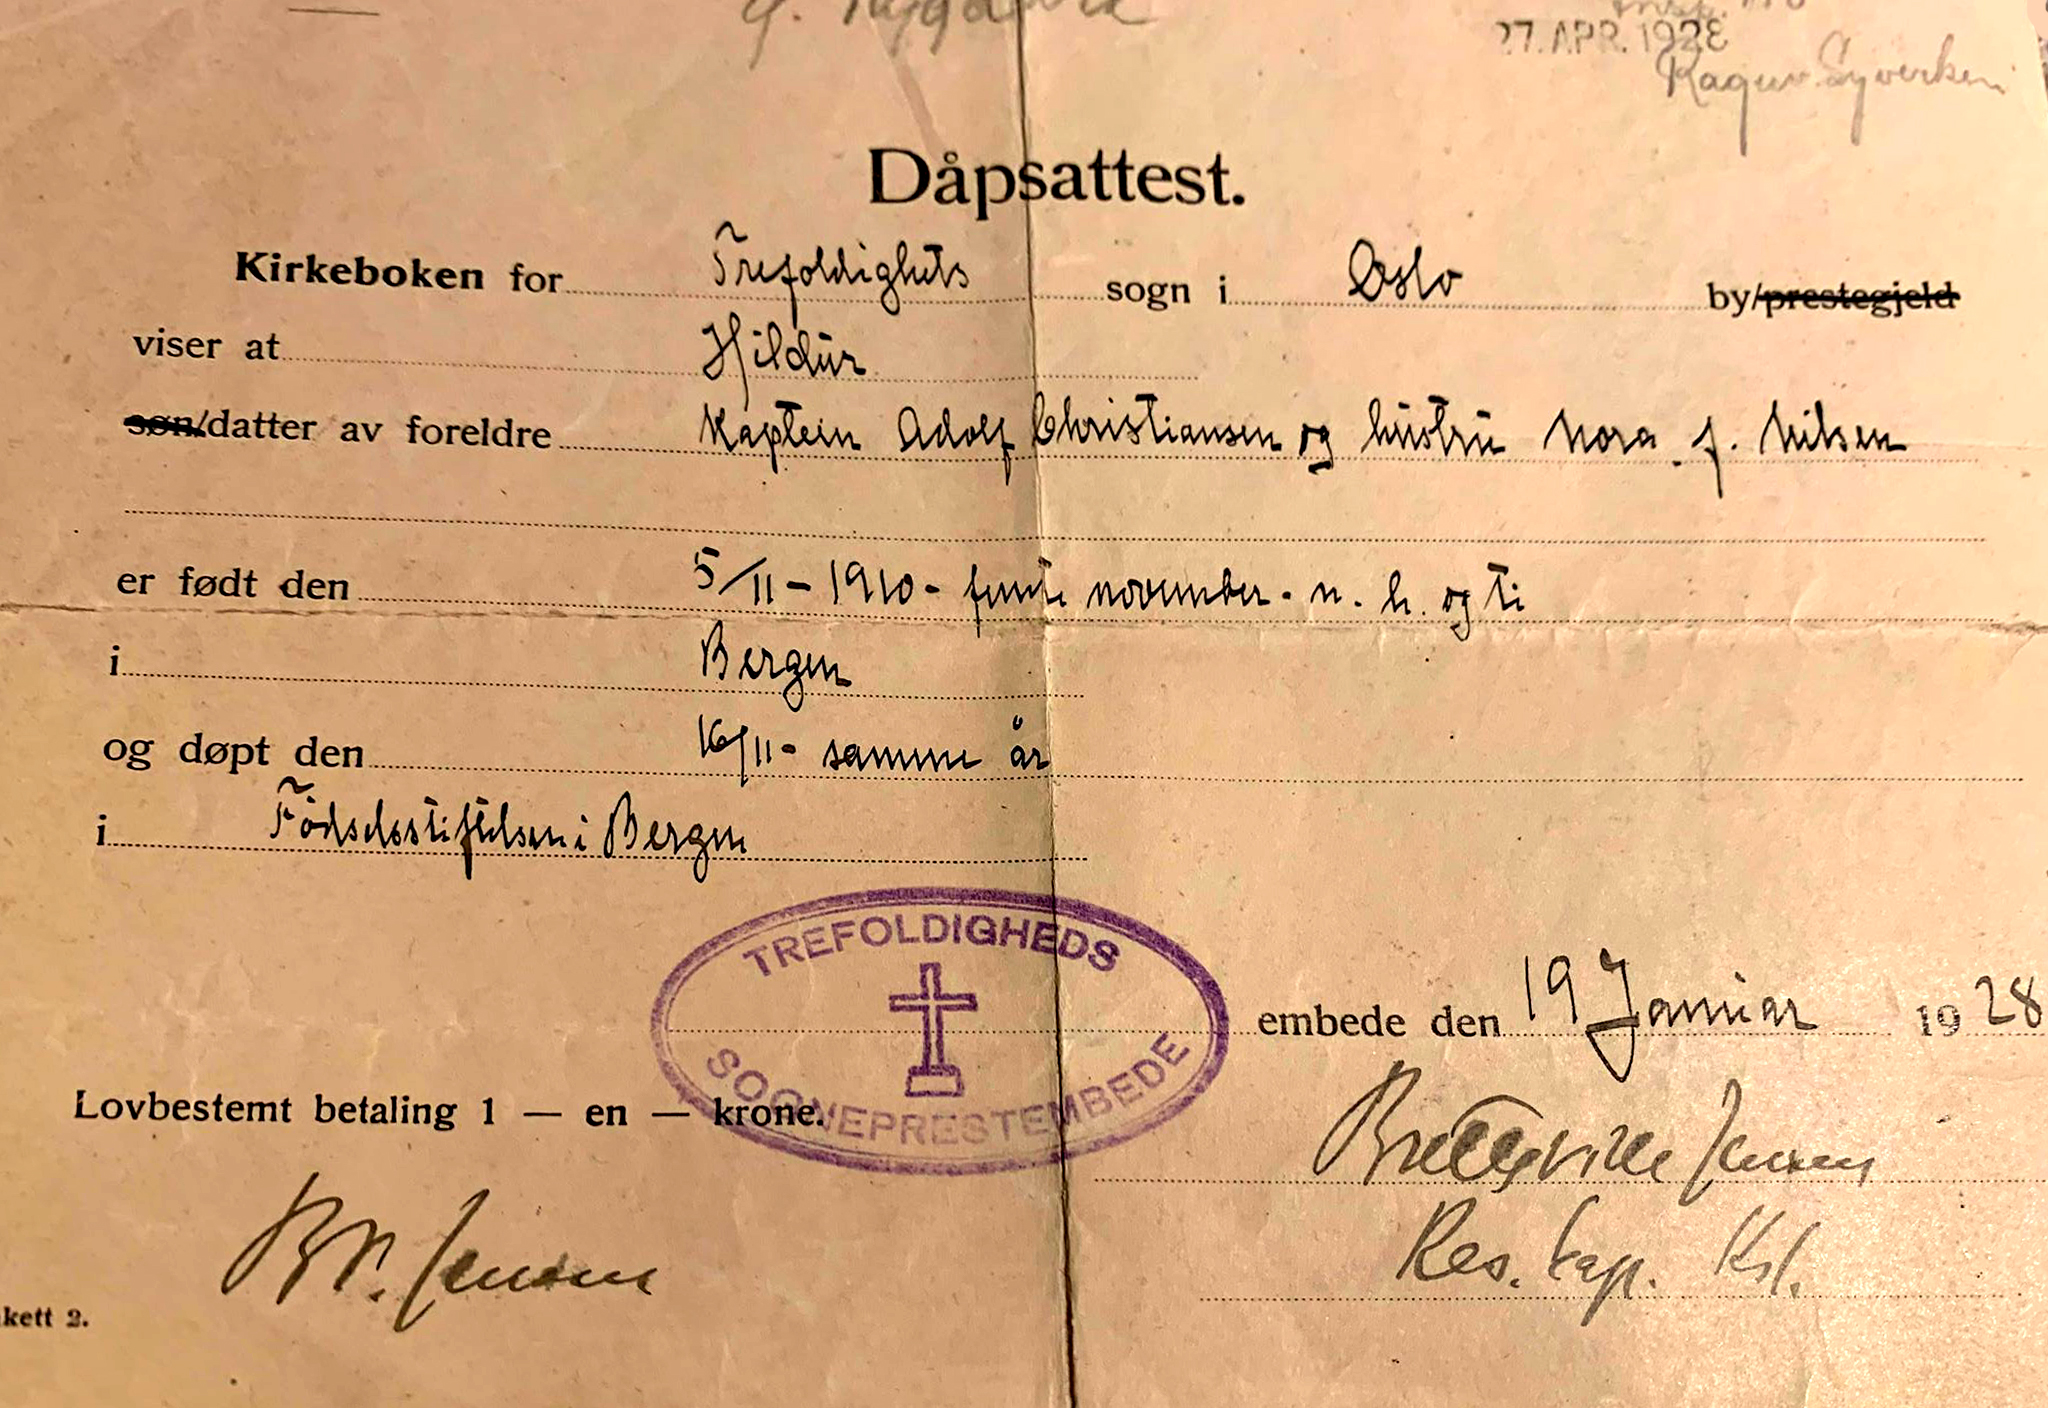 27. APR. 1928
Dåpsattest.
Kirkeboken for Trefoldighets sogn i Oslo by/prestegjeld
viser at Hildur
søn/datter av foreldre Kaptein Adolf Christiansen og hustru Nora f. Nilsen
er født den 5/11 - 1910 - femte november. n. h. og ti
i Bergen
og døpt den 16/11 - samme år
i Fødselsstiftelsen i Bergen
TREFOLDIGHEDS
SOGNEPRESTEMBEDE
embede den 19 Januar 1928
Lovbestemt betaling 1 — en — krone.
Jensen
Res. kap. Kst.
B V. Jensen
kett 2.